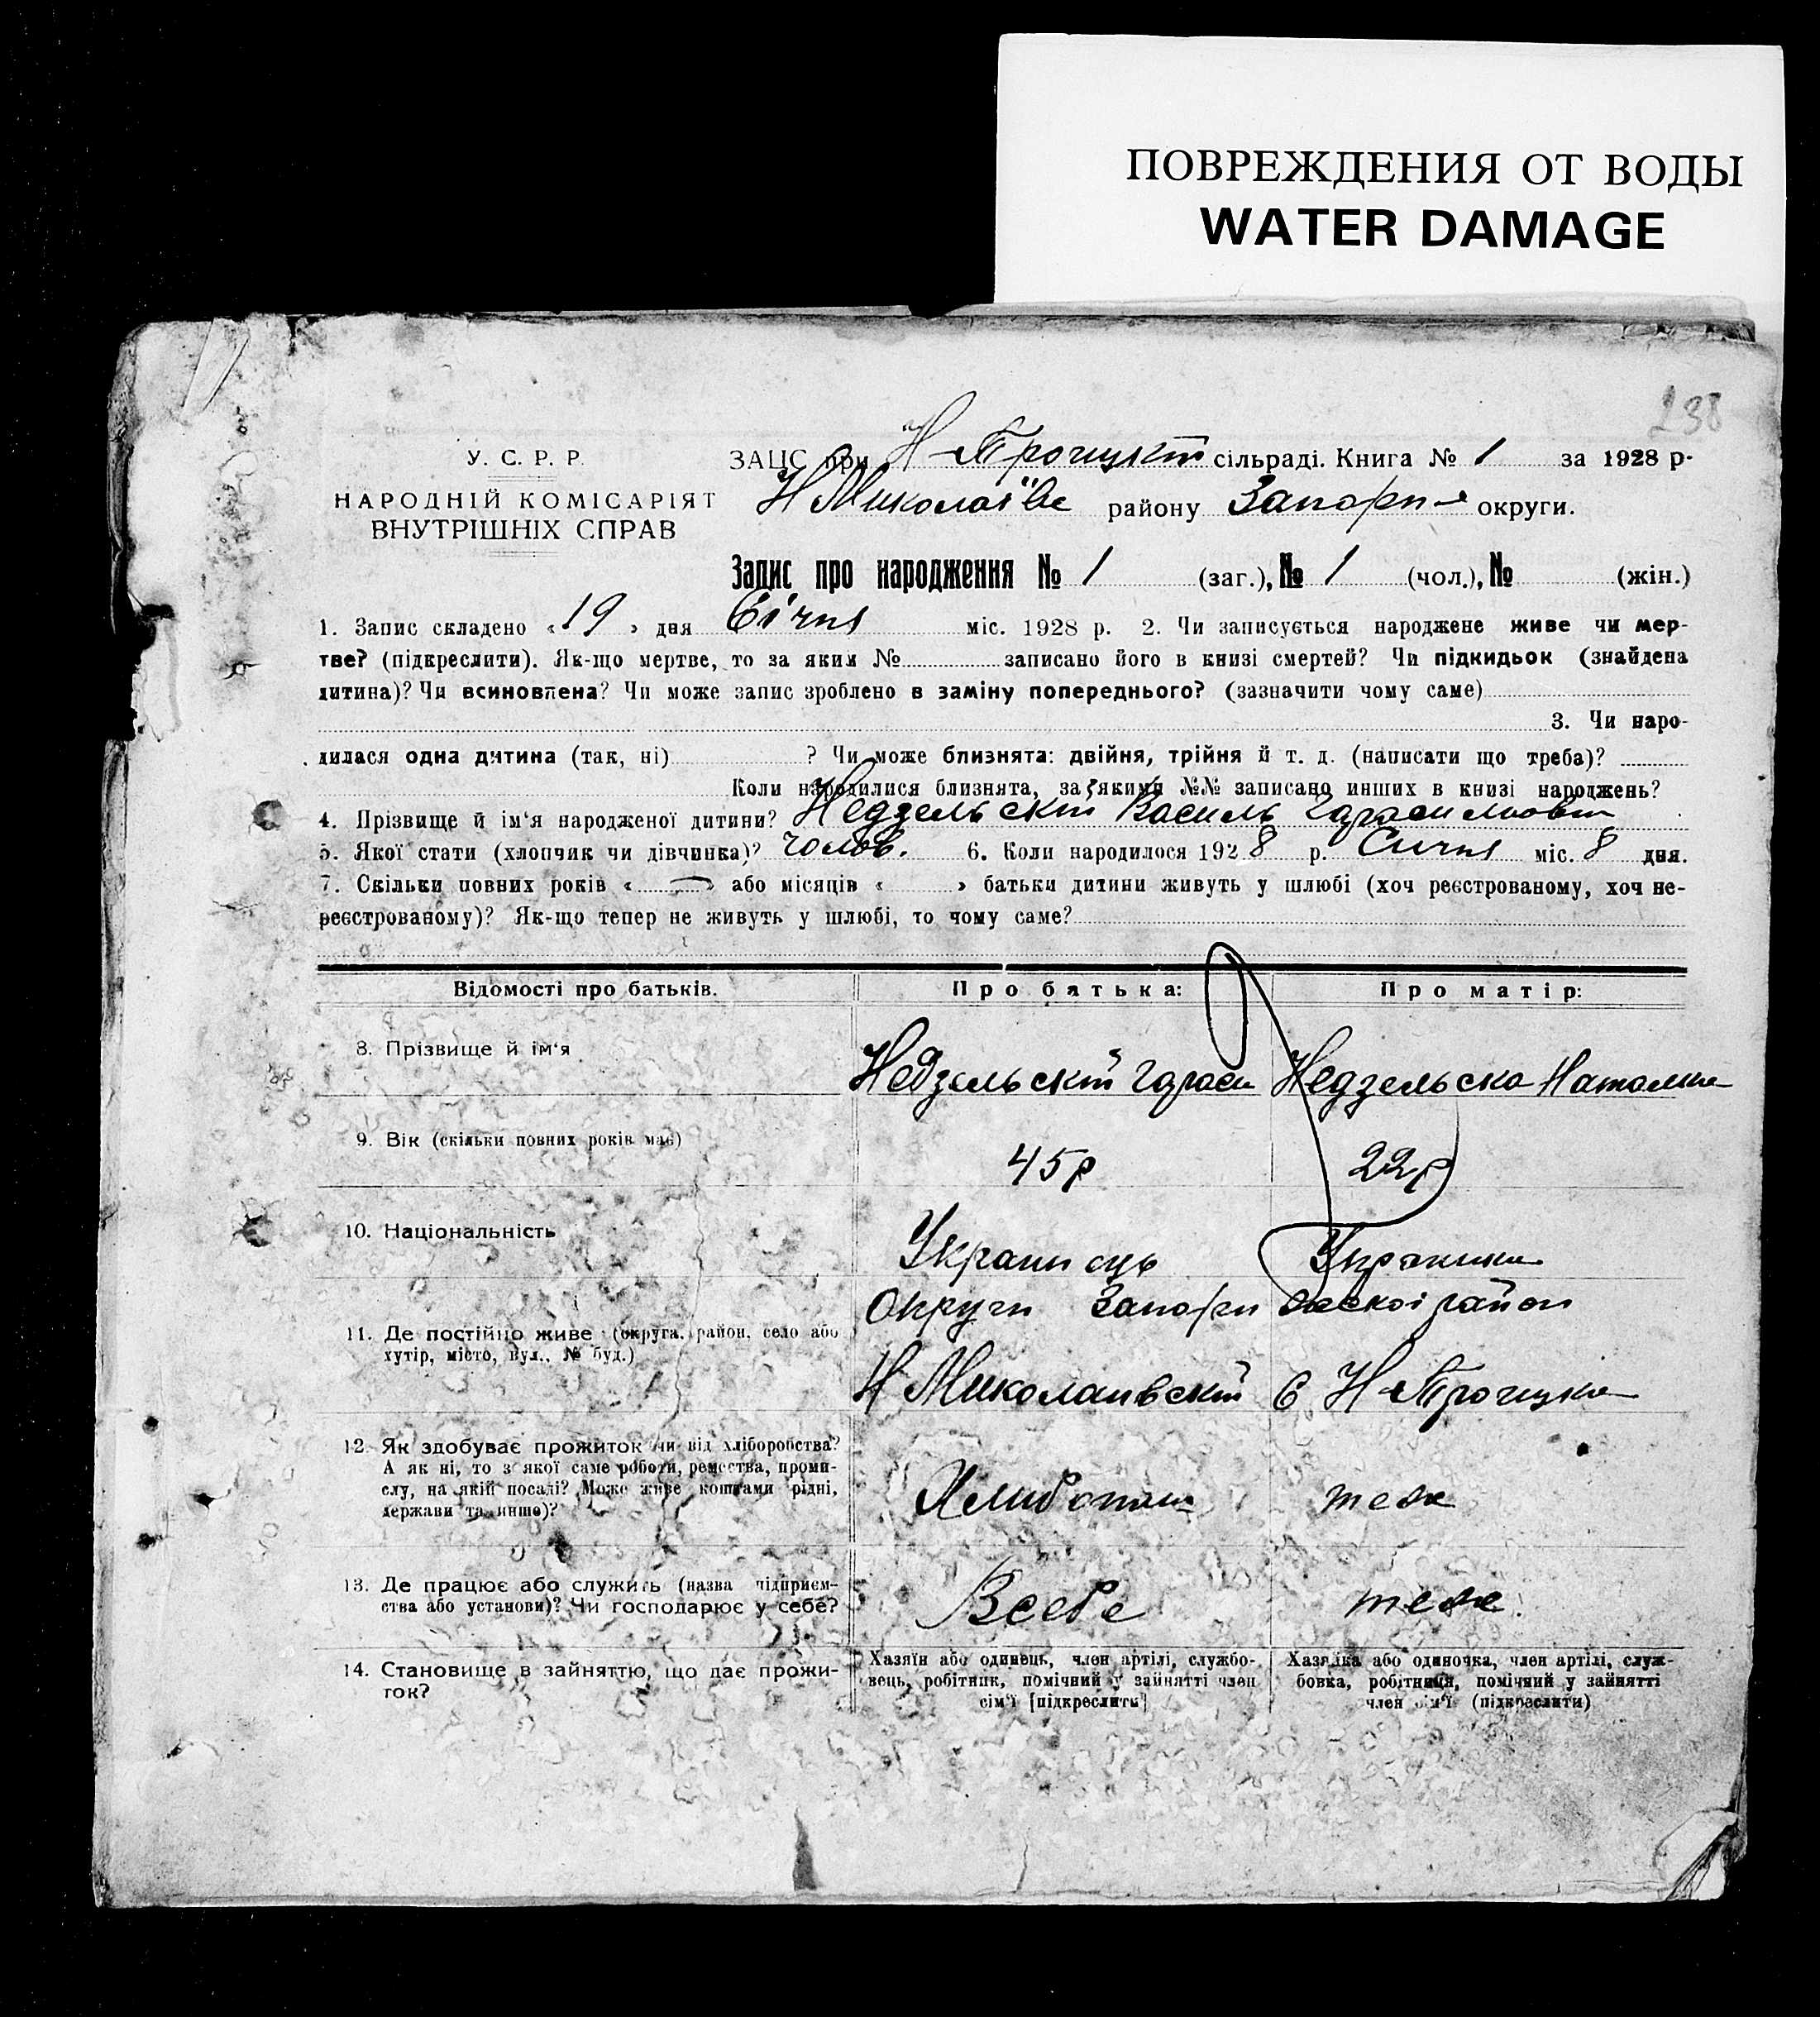 ПОВРЕЖДЕНИЯ ОТ ВОДЫ
WATER DAMAGE
238
У. С. Р. Р.
НАРОДНІЙ КОМІСАРІЯТ
ВНУТРІШНІХ СПРАВ
ЗАЦС при Н-Троицкій сільраді. Книга № 1 за 1928 р.
Н Миколаївс району Запорі- округи.
Запис про народження № 1 (заг.), № 1 (чол.), № (жін.)
1. Запис складено «19» дня Січня міс. 1928 р. 2. Чи записується народжене живе чи мер-
тве? (підкреслити). Як-що мертве, то за яким № записано його в книзі смертей? Чи підкидьок (знайдена
дитина)? Чи всиновлена? Чи може запис зроблено в заміну попереднього? (зазначити чому саме)
3. Чи наро-
дилася одна дитина (так, ні) ? Чи може близнята: двійня, трійня й т. д. (написати що треба)?
Коли народилися близнята, за якими №№ записано инших в книзі народжень?
4. Прізвище й ім'я народженої дитини? Недзельскій Василь Гарасимович
5. Якої стати (хлопчик чи дівчинка)? Чолов. 6. Коли народилося 1928 р. Сичня міс. 8 дня.
7. Скільки повних років « — » або місяців « » батьки дитини живуть у шлюбі (хоч реєстрованому, хоч не-
реєстрованому)? Як-що тепер не живуть у шлюбі, то чому саме?
Відомості про батьків. Про батька: Про матір:
8. Прізвище й ім'я Недзельскій Гараси Недзельска Наталка
9. Вік (скільки повних років має) 45р 22р
10. Національність Украинець Украинка
Округи Запори жскоі район
11. Де постійно живе (округа, район, село або
хутір, місто, вул., № буд.)
Н Миколаивскій С Н-Троицка
12. Як здобуває прожиток чи від хліборобства?
А як ні, то з якої саме роботи, ремества, проми-
слу, на якій посаді? Може живе коштами рідні,
держави та инше)?
Хлибопаш теж
13. Де працює або служить (назва підприєм-
ства або установи)? Чи господарює у себе?
Всебе теж.
14. Становище в зайняттю, що дає прожи-
ток?
Хазяїн або одинець, член артілі, службо-
вець, робітник, помічний у зайнятті член
сім'ї [підкреслить]
Хазяйка або одиночка, член артілі, служ-
бовка, робітниця, помічний у зайнятті
член сім'ї (підкреслити)